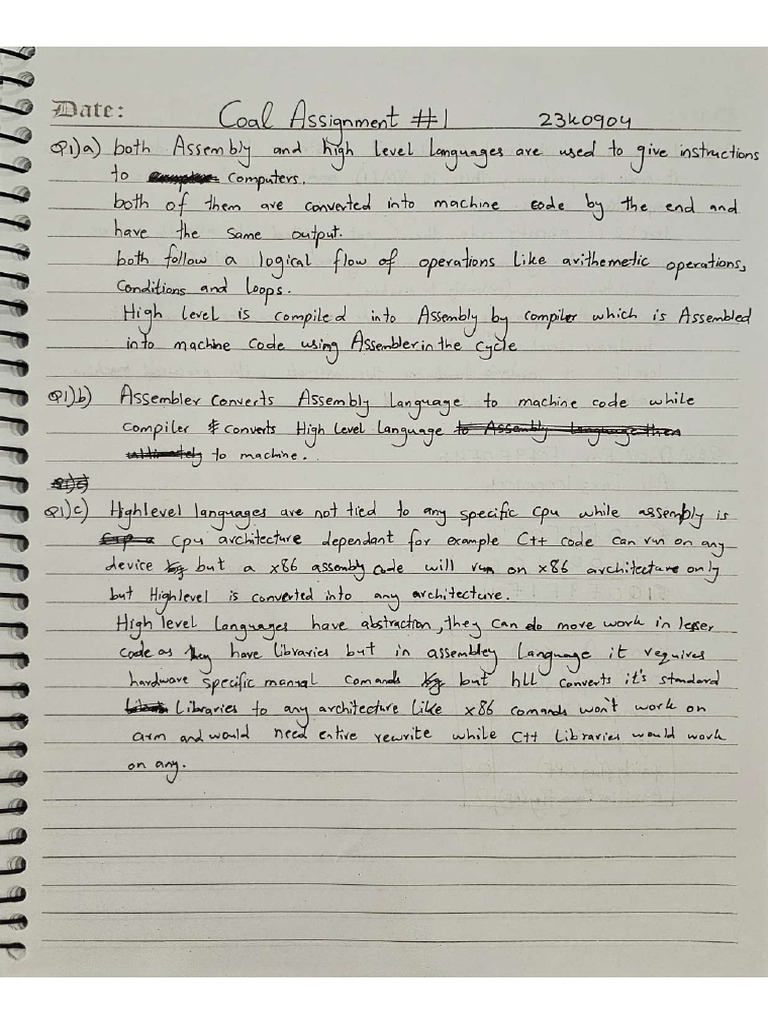 Date: Coal Assignment #1 23k0904
Q1)a) both Assembly and high level languages are used to give instructions
to computers.
both of them are converted into machine code by the end and
have the same output.
both follow a logical flow of operations like arithemetic operations,
conditions and loops.
High level is compiled into Assembly by compiler which is Assembled
into machine code using Assembler in the cycle
Q1)b) Assembler converts Assembly language to machine code while
compiler converts High level Language to Assembly language then
ultimately to machine.
Q1)c)
Q1)c) Highlevel languages are not tied to any specific cpu while assembly is
cpu architecture dependant for example C++ code can run on any
device but a x86 assembly code will run on x86 architecture only
but Highlevel is converted into any architecture.
High level languages have abstraction, they can do more work in lesser
code as they have libraries but in assembley language it requires
hardware specific manual comands but hll converts it's standard
Libraries to any architecture like x86 comands won't work on
arm and would need entire rewrite while C++ Libraries would work
on any.